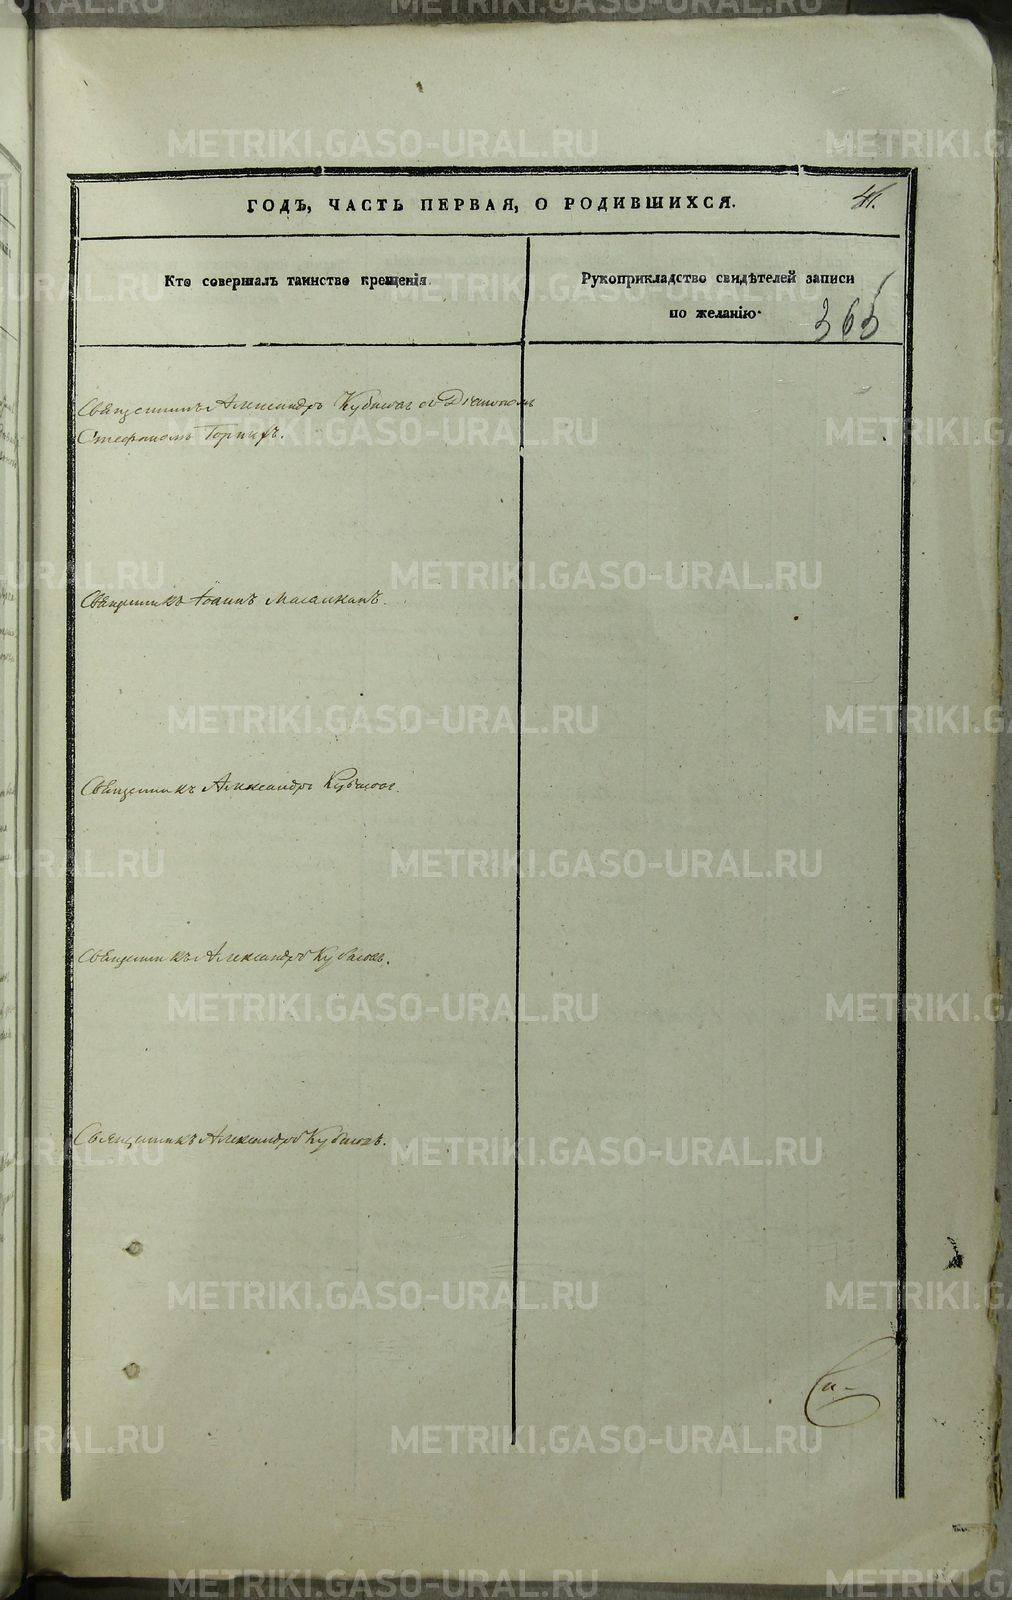 ГОДЪ, ЧАСТЬ ПЕРВАЯ, О РОДИВШИХСЯ.
41.
Кто совершалъ таинство крещенія.
Рукоприкладство свидѣтелей записи
по желанію.
363
Священникъ Александръ Кубасовъ съ Діакономъ
Стефаномъ
Священникъ Іоаннъ
Священникъ Александръ Кубасовъ.
Священникъ Александръ Кубасовъ.
Священникъ Александръ Кубасовъ.
METRIKI.GASO-URAL.RU